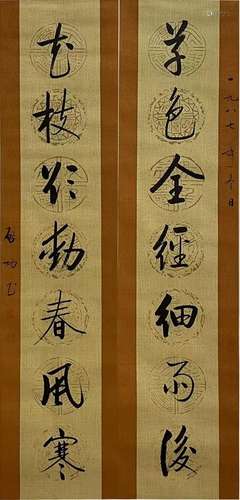 一九八七年 日
草色全經細雨後
花枝欲動春風寒
啟功